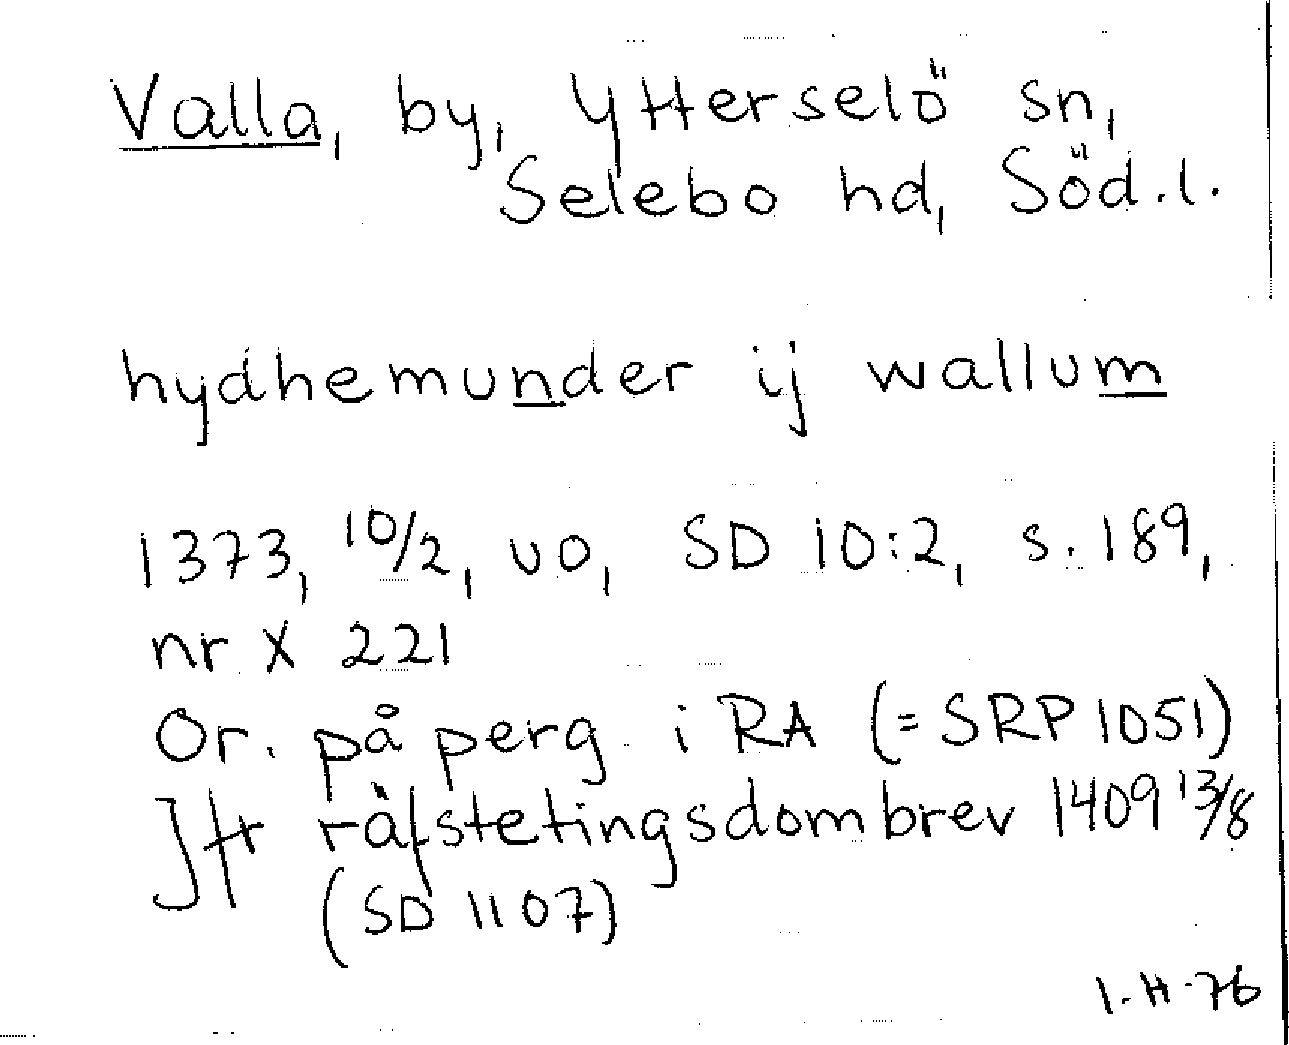 Valla, by, Ytterselö sn,
Selebo hd, Söd.l.
hydhemunder ij wallum
1373, 10/2, uo, SD 10:2, s. 189,
nr X 221
Or. på perg. i RA (= SRP 1051)
Jfr räfstetingsdombrev 1409 13/8
(SD 1107)
1.H.76